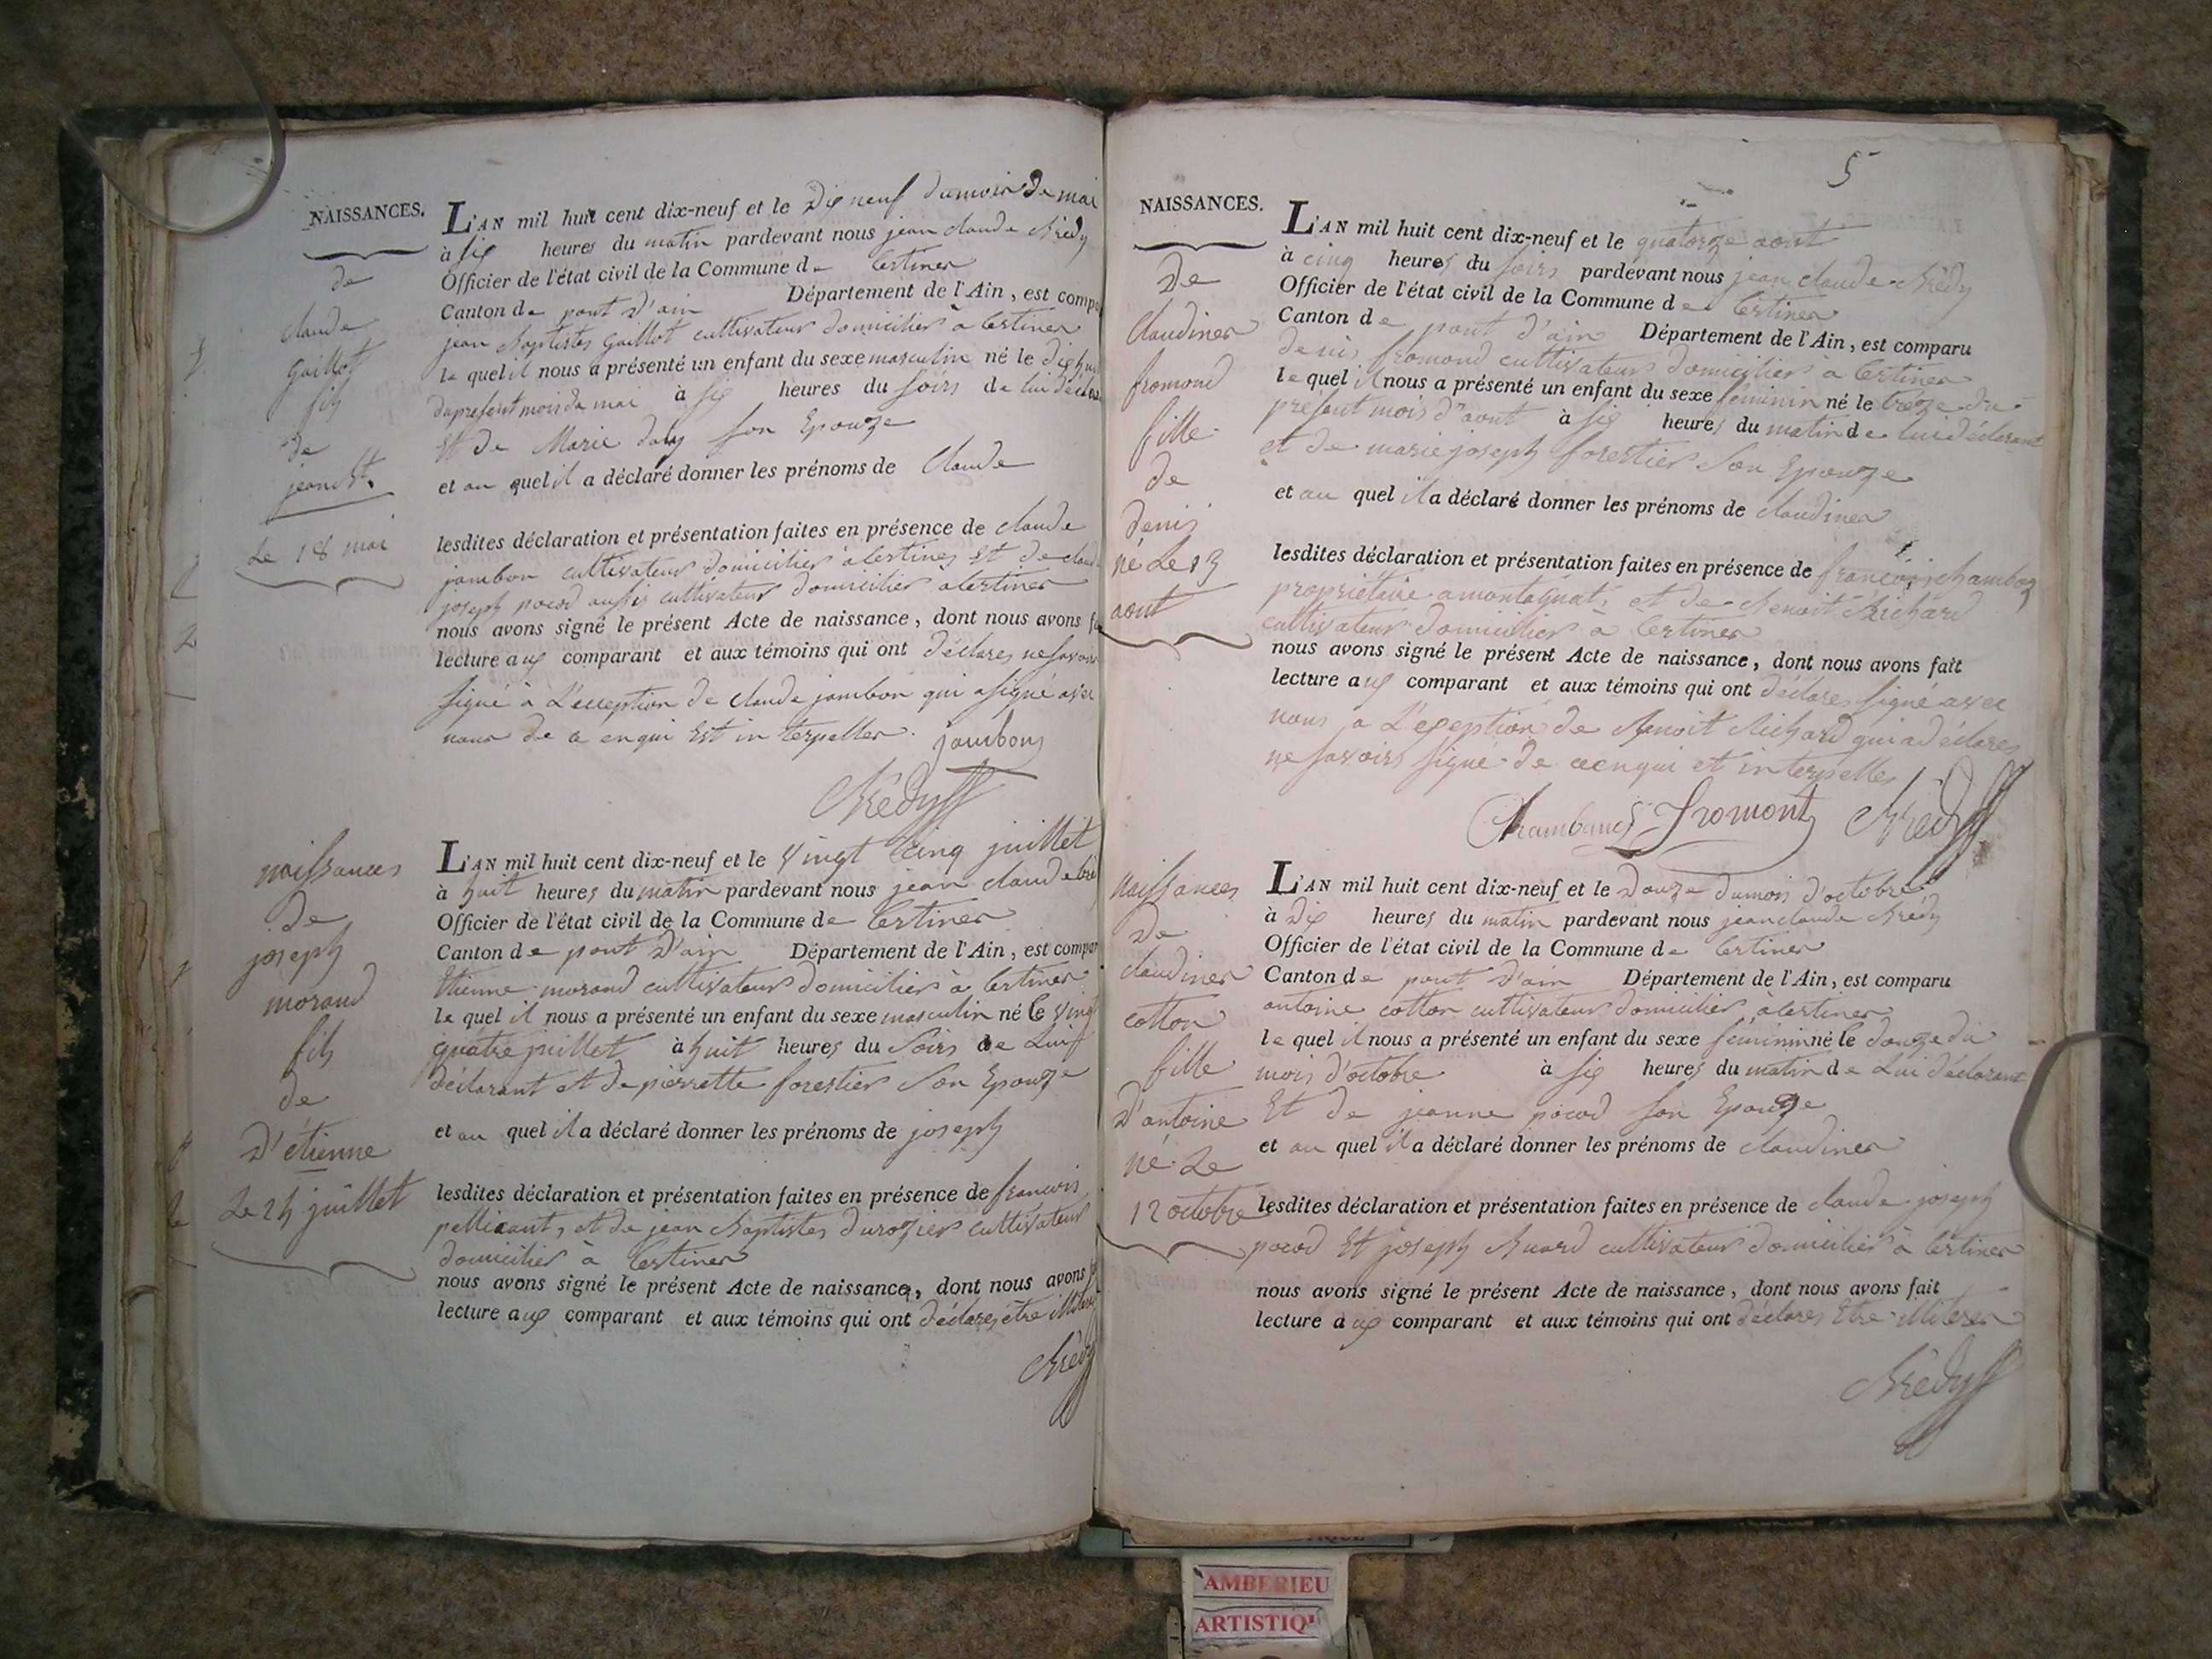 NAISSANCES.
de
claude
gaillot
fils
de
jean Bte
Le 18 mai
L'AN mil huit cent dix-neuf et le Dix neuf du mois de mai
à six heures du matin pardevant nous jean claude Brédy
Officier de l'état civil de la Commune de Certines
Canton de pont d'ain Département de l'Ain, est compa
jean Baptistes gaillot cultivateur domicilier à Certines
le quel il nous a présenté un enfant du sexe masculin né le dix huit
du présent mois de mai à six heures du soirs de lui déclarant
Et de Marie son Epouze
et au quel il a déclaré donner les prénoms de Claude
lesdites déclaration et présentation faites en présence de claude
jambon cultivateur domicilier à Certines Et de claude
joseph pocod aussi cultivateur domicilier a Certines
nous avons signé le présent Acte de naissance, dont nous avons fa
lecture aux comparant et aux témoins qui ont déclares ne savoir
signé à L'exception de claude jambon qui a signé avec
nous de ce enqui Est interpeller. jambon
Brédy
naissances
de
joseph
morand
fils
de
D'étienne
Le 24 juillet
L'AN mil huit cent dix-neuf et le Vingt Cinq juillet
à huit heures du matin pardevant nous jean claude bré
Officier de l'état civil de la Commune de Certines
Canton de pont D'ain Département de l'Ain, est compar
Etienne morand cultivateur domicilier à Certines
le quel il nous a présenté un enfant du sexe masculin né le Vingt
quatre juillet à huit heures du Soirs de Lui
déclarant et de pierrette forestier Son Epouze
et au quel il a déclaré donner les prénoms de joseph
lesdites déclaration et présentation faites en présence de francois
pellicant, et de jean Baptistes durozier cultivateur
domicilier à Certines
nous avons signé le présent Acte de naissance, dont nous avons f
lecture aux comparant et aux témoins qui ont déclares être illiteres
Brédy
5
NAISSANCES.
De
Claudines
fromond
fille
de
denis
né Le 13
aout
L'AN mil huit cent dix-neuf et le quatorze aout
à cinq heures du soirs pardevant nous jean claude Brédy
Officier de l'état civil de la Commune de Certines
Canton de pont d'ain Département de l'Ain, est comparu
denis fromond cultivateur domicilier à Certines
le quel il nous a présenté un enfant du sexe féminin né le treze du
présent mois d'aout à six heures du matin de lui déclarant
et de marie joseph forestier Son Epouze
et au quel il a déclaré donner les prénoms de claudines
lesdites déclaration et présentation faites en présence de françois chambos
propriétaire a montagnat, et de Benoit Richard
cultivateur domicilier à Certines
nous avons signé le présent Acte de naissance, dont nous avons fait
lecture aux comparant et aux témoins qui ont déclares signé avec
nous a L'exception de Benoit Richard qui a déclares
ne savoirs signé de ce enqui et interpelles
Fromont Brédy
Naissances
De
claudines
cotton
fille
D'antoine
né Le
12 octobre
L'AN mil huit cent dix-neuf et le Douze du mois d'octobre
à Dix heures du matin pardevant nous jean claude Brédy
Officier de l'état civil de la Commune de Certines
Canton de pont D'ain Département de l'Ain, est comparu
antoine cotton cultivateur domicilier à Certines
le quel il nous a présenté un enfant du sexe féminin né le douze du
mois d'octobre à six heures du matin de Lui déclarant
Et de jeanne pocod son Epouze
et au quel il a déclaré donner les prénoms de claudines
lesdites déclaration et présentation faites en présence de claude joseph
pocod Et joseph cultivateur domicilier à Certines
nous avons signé le présent Acte de naissance, dont nous avons fait
lecture aux comparant et aux témoins qui ont déclares Etre illiteres
Brédy
AMBERIEU
ARTISTIQU